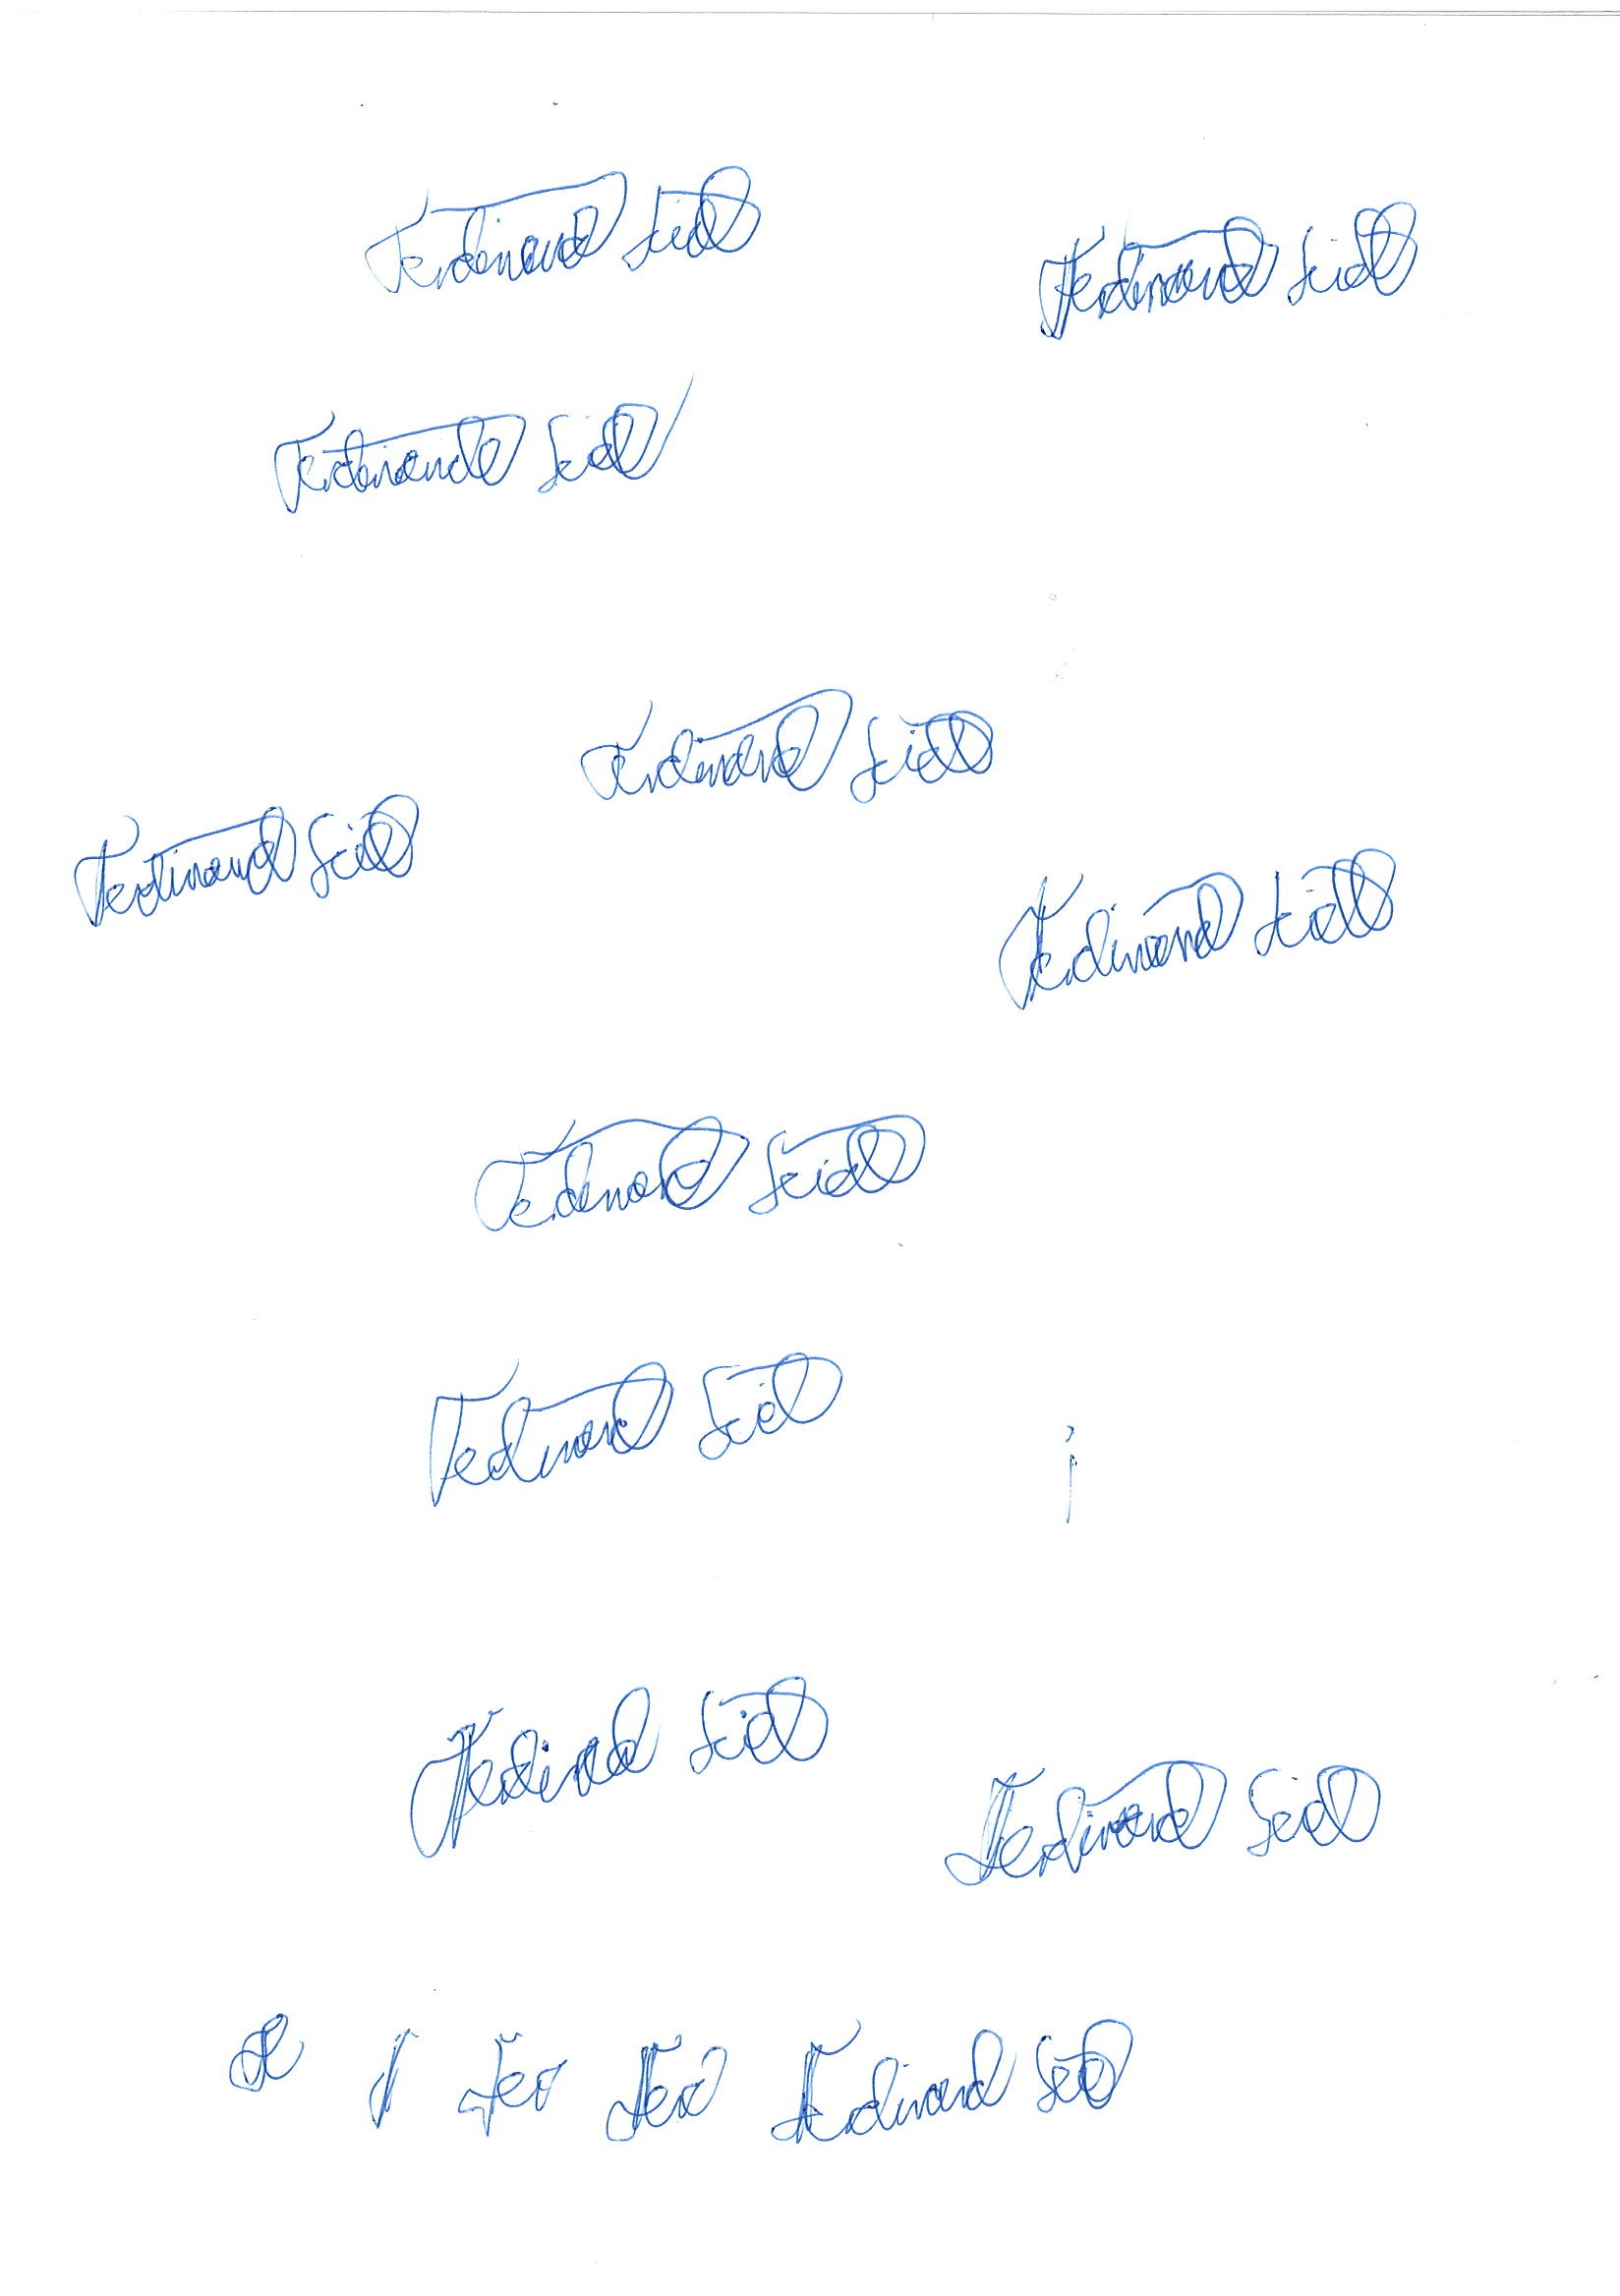 Ferdinand Seidl
Ferdinand Seidl
Ferdinand Seidl
Ferdinand Seidl
Ferdinand Seidl
Ferdinand Seidl
Ferdinand Seidl
Ferdinand Seidl
Ferdinand Seidl
Ferdinand Seidl
Fer Fed Ferdinand Seidl